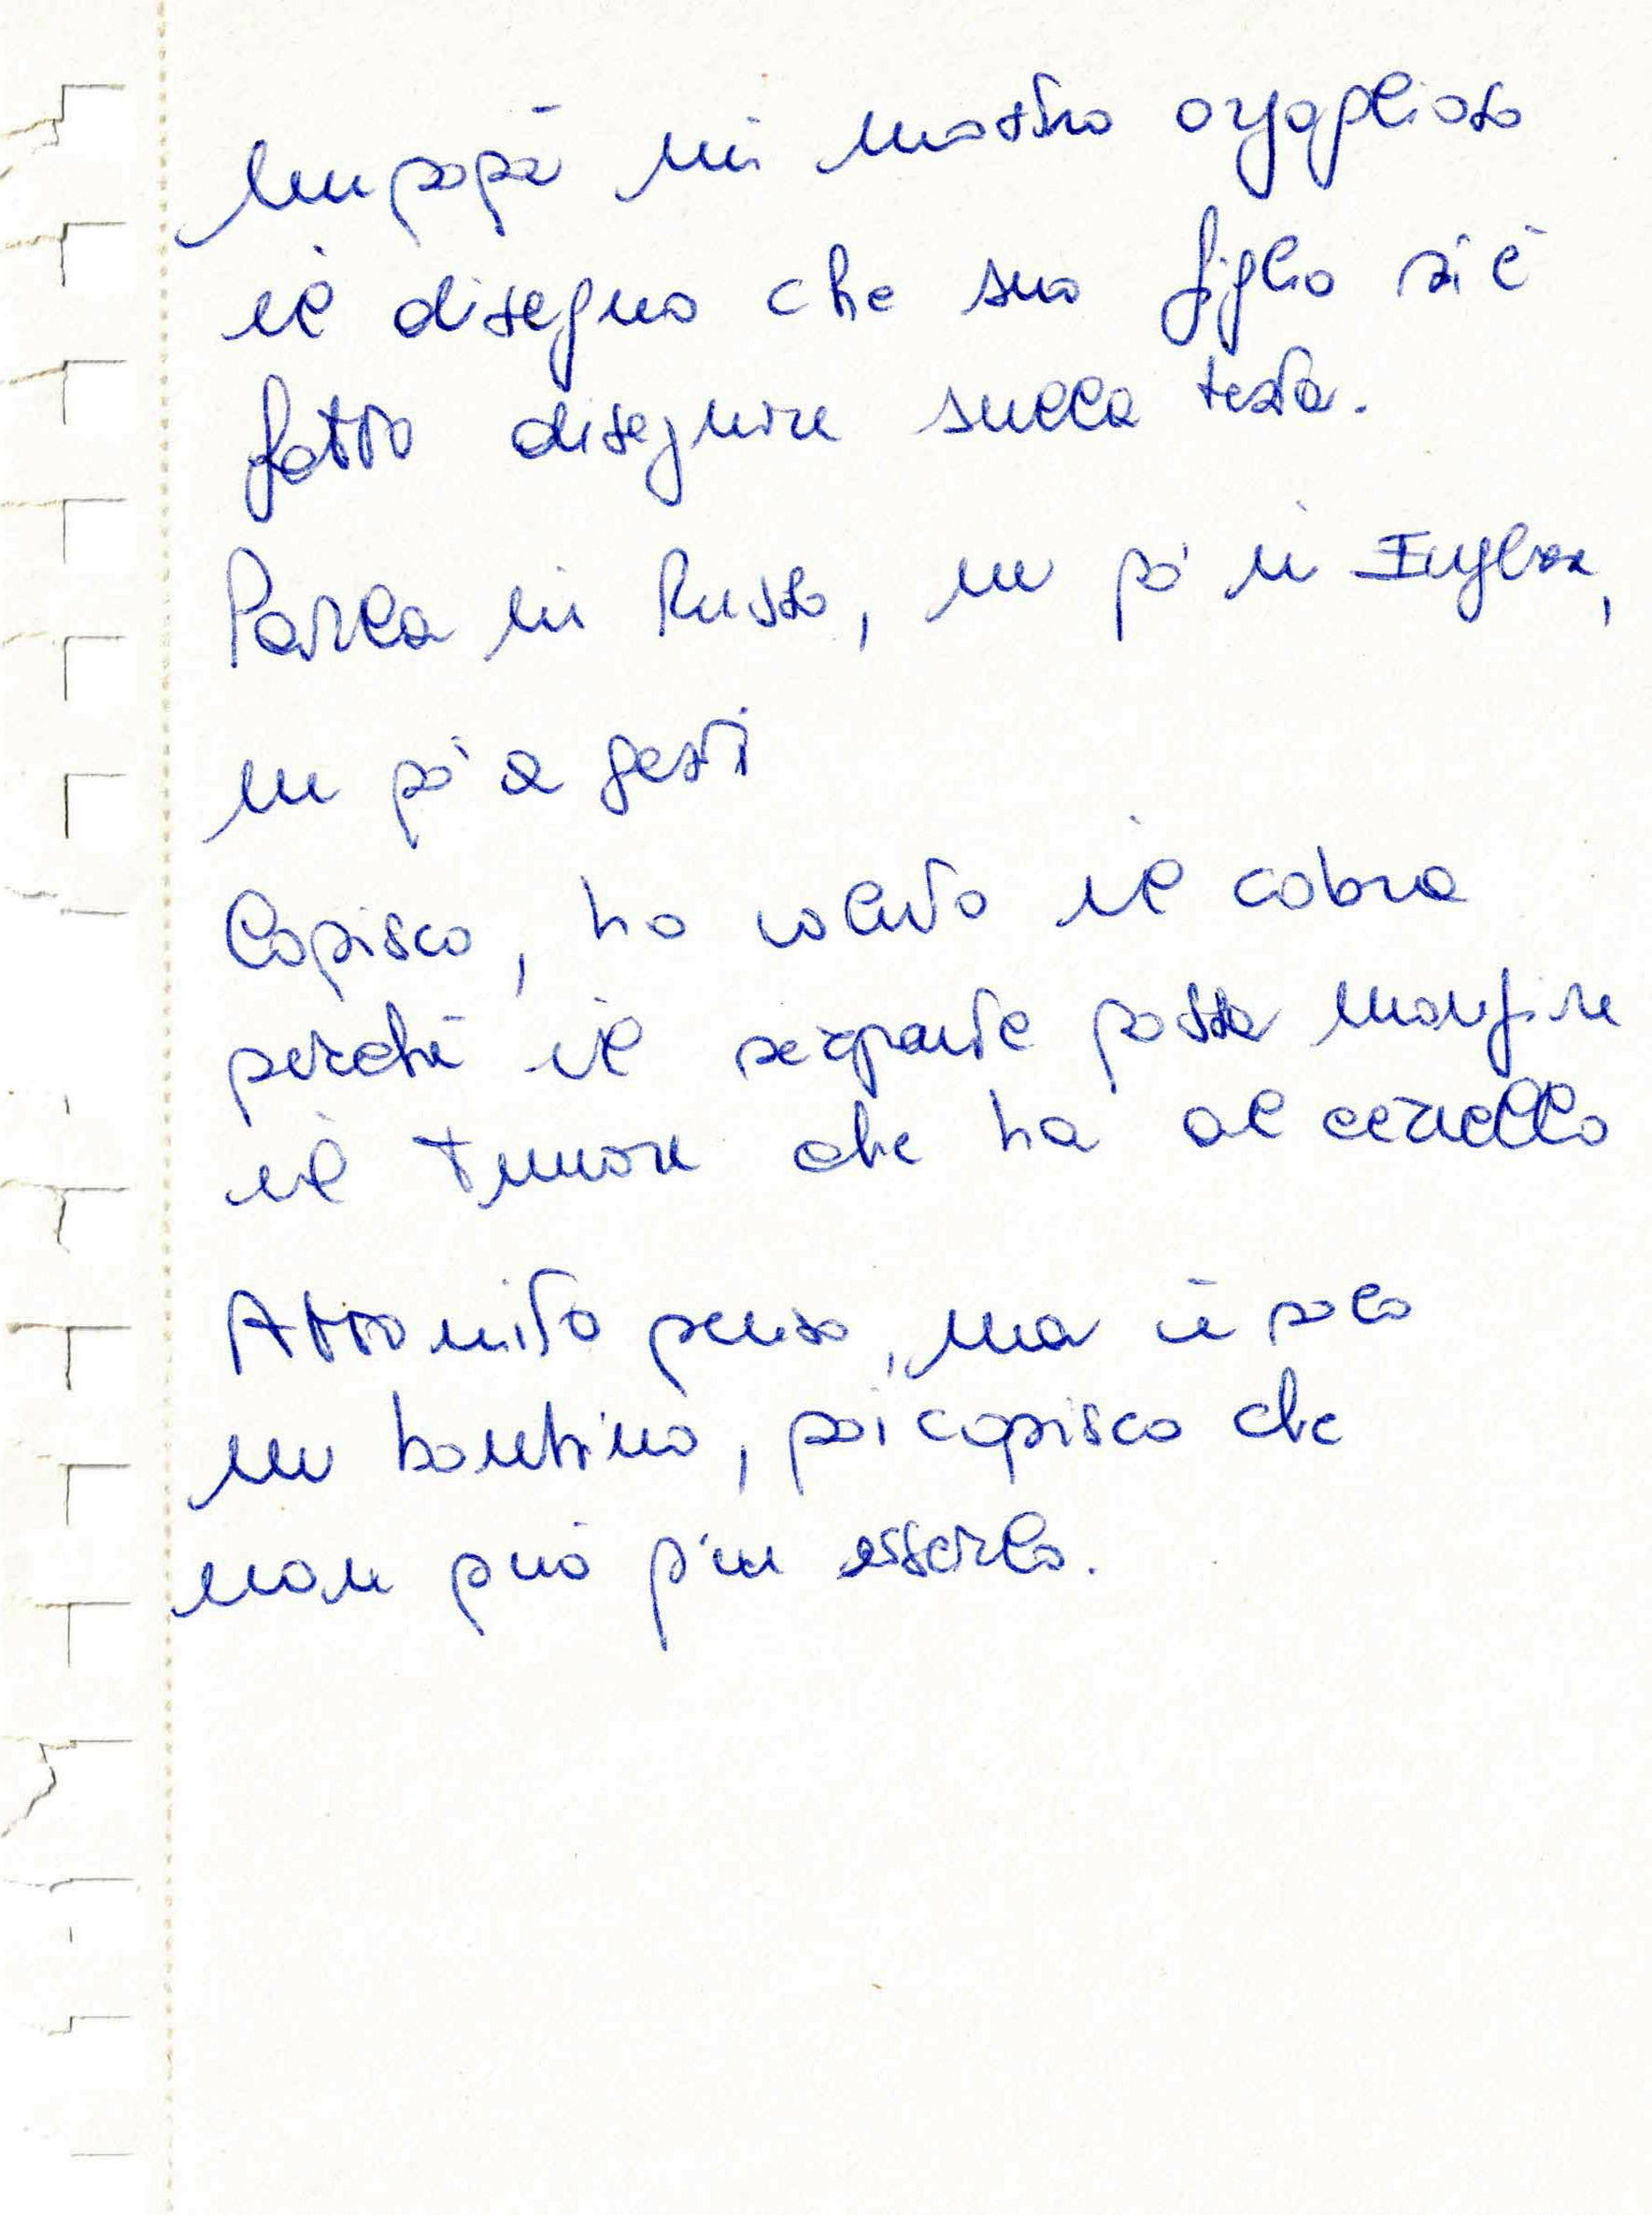 Un papà mi mostra orgoglioso
il disegno che suo figlio si è
fatto disegnare sulla testa.
Parla in Russo, un pò in Inglese,
un pò a gesti
Capisco, ha voluto il cobra
perchè il serpente possa mangiare
il tumore che ha al cervello
Attonito penso, ma è solo
un bambino, poi capisco che
non può più esserlo.